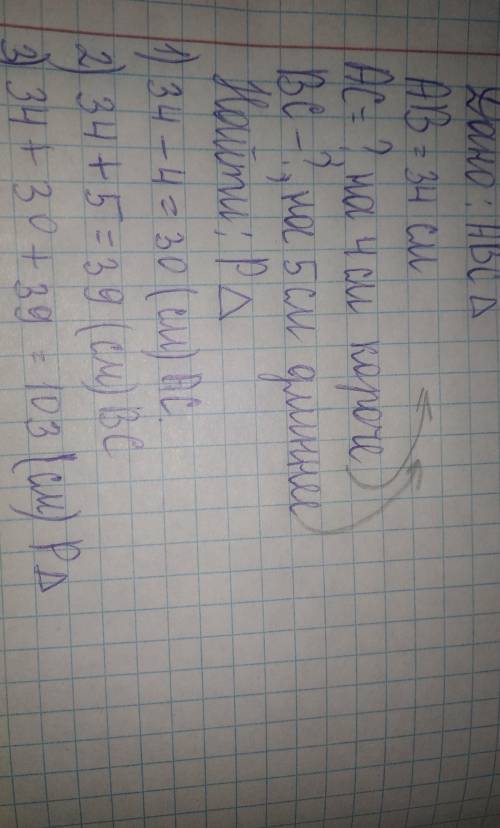 Дано: АВС△
АВ = 34 см
АС = ? на 4 см короче
ВС - ?, на 5 см длиннее
Найти: Р△
1) 34 - 4 = 30 (см) АС.
2) 34 + 5 = 39 (см) ВС
3) 34 + 30 + 39 = 103 (см) Р△